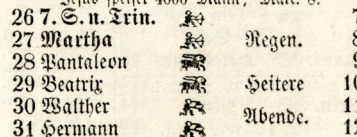 26 7. S. n. Trin.
27 Martha Regen.
28 Pantaleon
29 Beatrix Heitere
30 Walther Abende.
31 Hermann